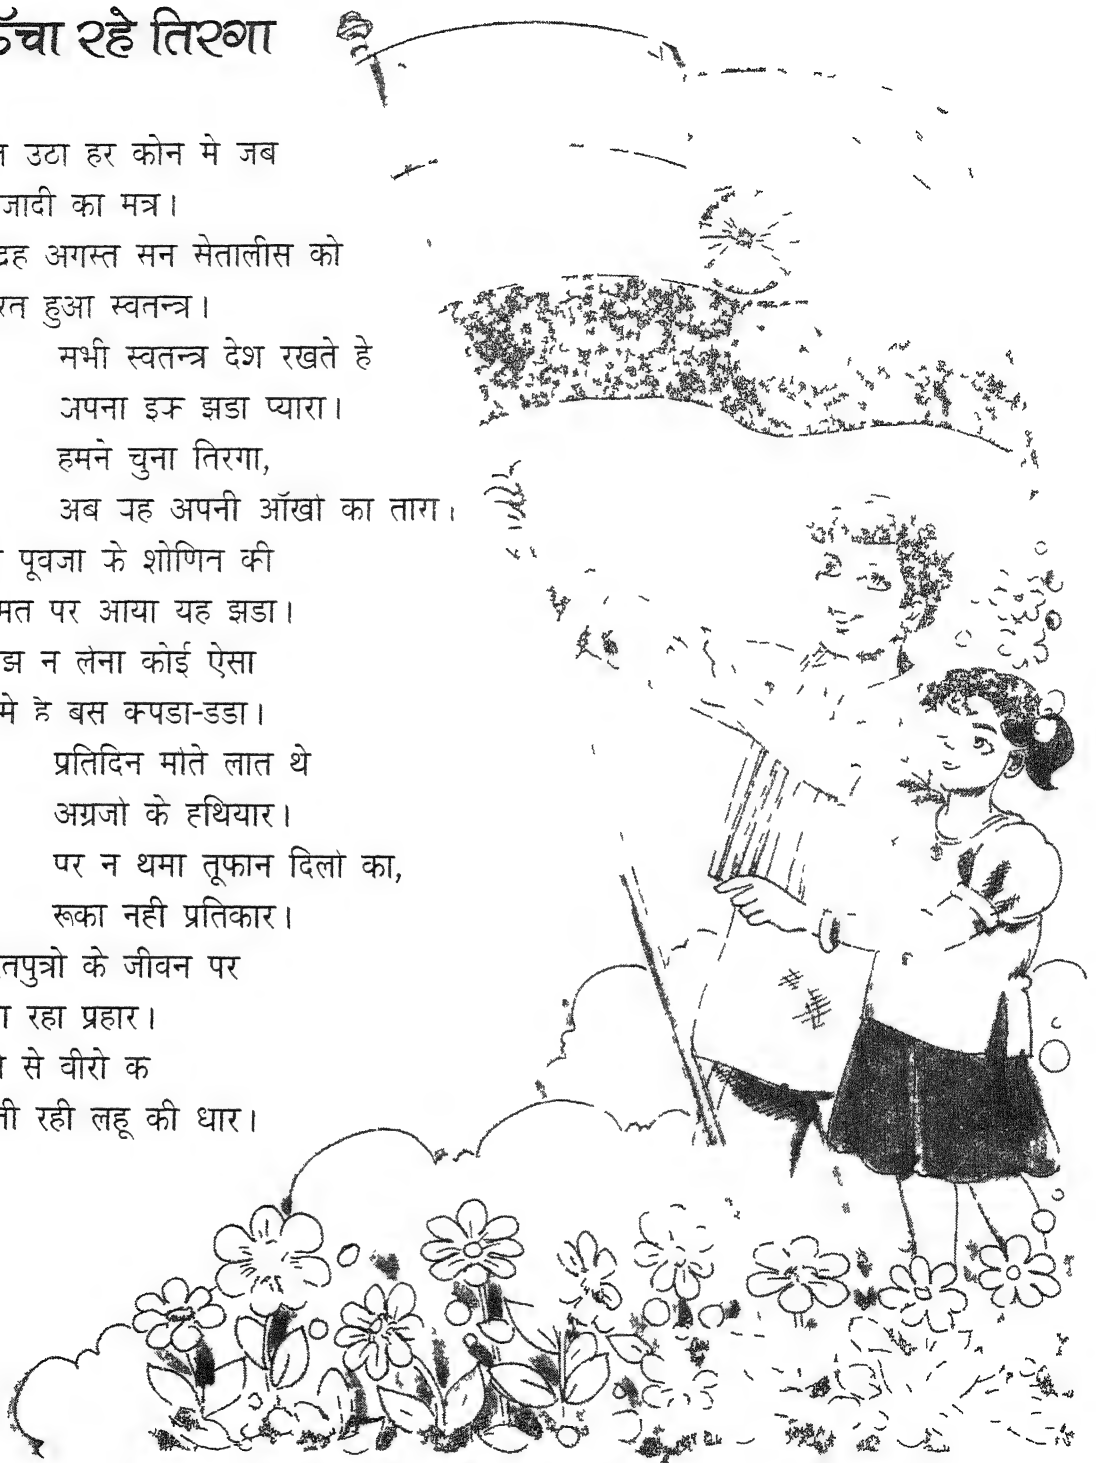 ऊँचा रहे तिरगा
उटा हर कोन मे जब
जादी का मत्र।
द्रह अगस्त सन सेतालीस को
रत हुआ स्वतन्त्र।
सभी स्वतन्त्र देश रखते हे
अपना इक झडा प्यारा।
हमने चुना तिरगा,
अब यह अपनी ऑखो का तारा।
पूवजा के शोणित की
मत पर आया यह झडा।
झ न लेना कोई ऐसा
मे हे बस कपडा-डडा।
प्रतिदिन मोते लात थे
अग्रजो के हथियार।
पर न थमा तूफान दिलो का,
रूका नही प्रतिकार।
तपुत्रो के जीवन पर
रहा प्रहार।
से वीरो क
ती रही लहू की धार।